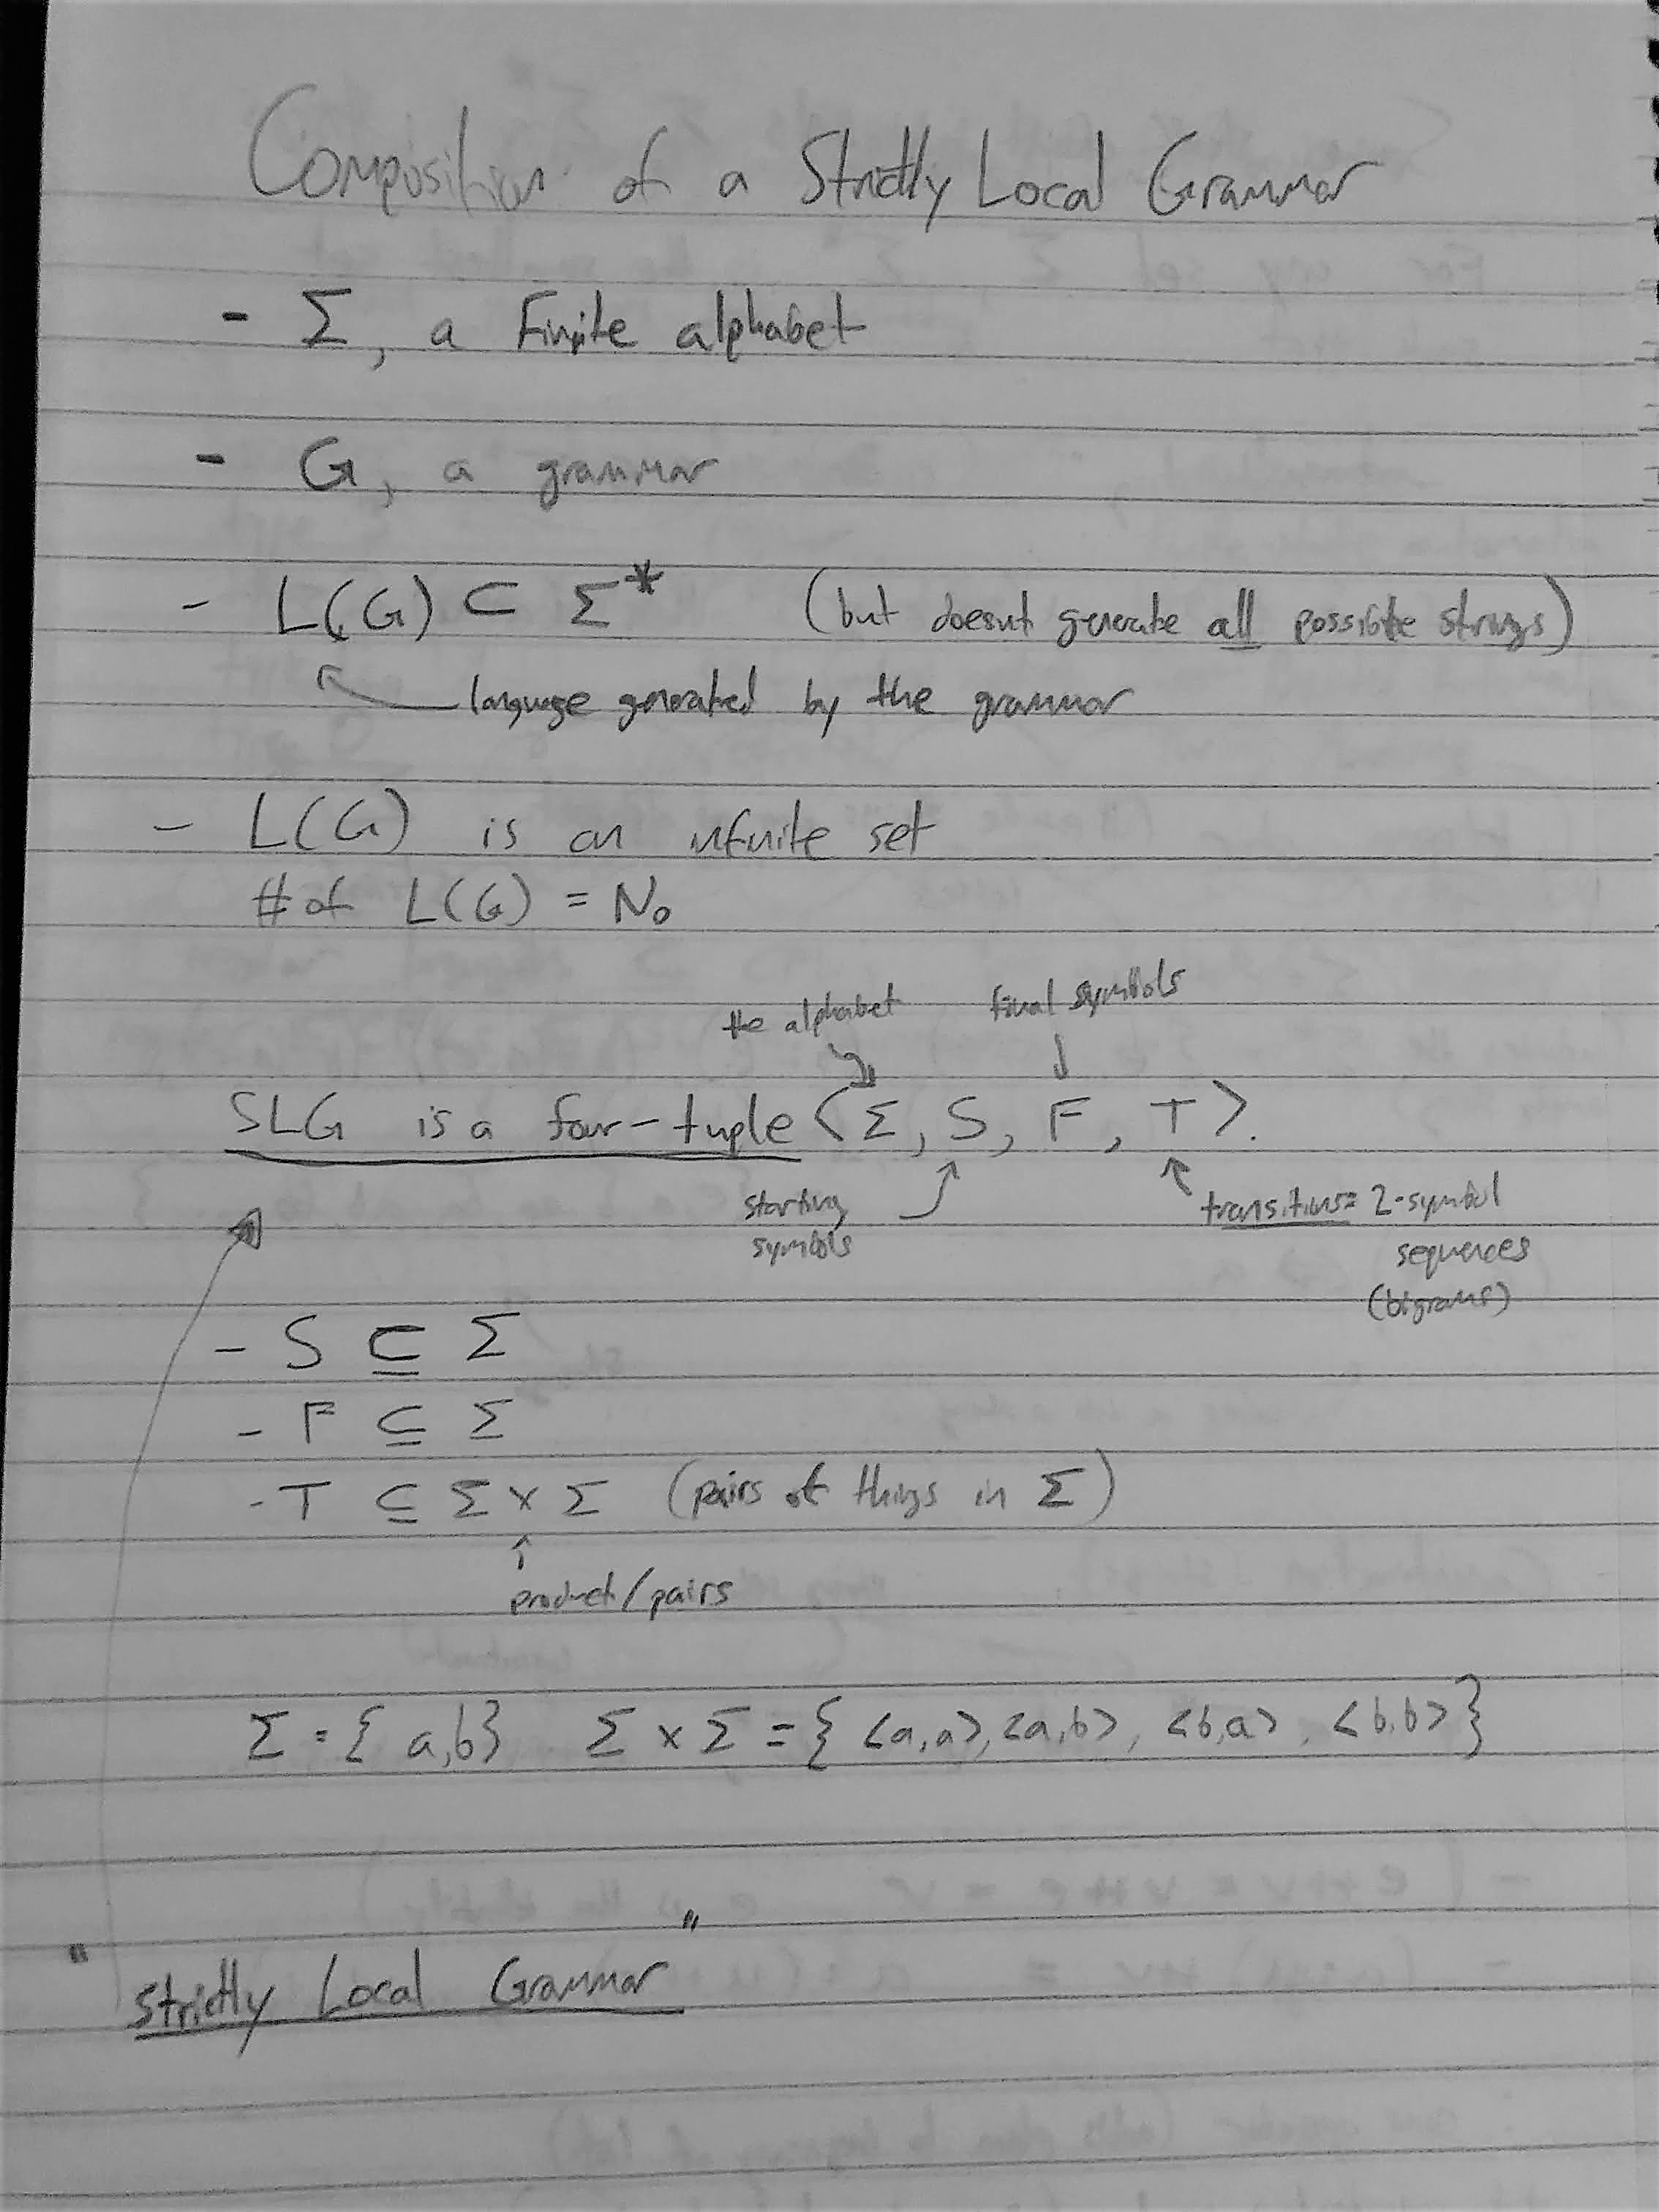 Composition of a Strictly Local Grammar
- Σ, a Finite alphabet
- G, a grammar
- L(G) ⊂ Σ* (but doesnt generate all possible strings)
language generated by the grammar
- L(G) is an infinite set
# of L(G) = N₀
the alphabet final symbols
SLG is a four-tuple ⟨Σ, S, F, T⟩.
starting symbols
transitions = 2-symbol
sequences
(bigrams)
- S ⊆ Σ
- F ⊆ Σ
- T ⊆ Σ × Σ (pairs of things in Σ)
product/pairs
Σ = { a,b} Σ × Σ = { <a,a>, <a,b>, <b,a>, <b,b> }
"Strictly Local Grammar"